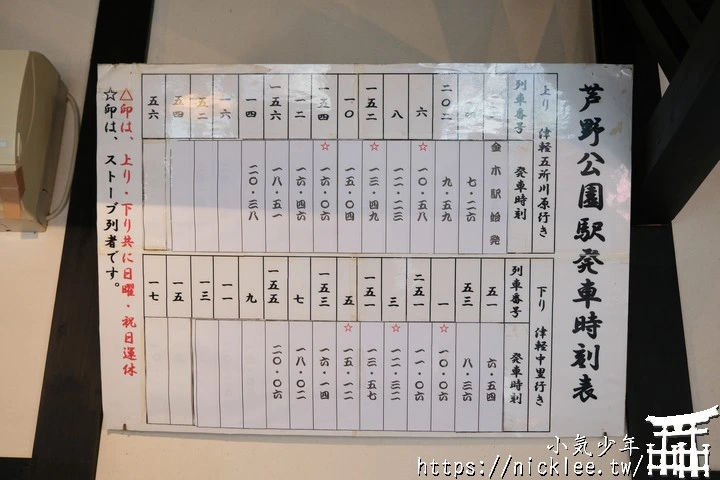 芦野公園駅発車時刻表
上り 津軽五所川原行き
列車番号 発車時刻
金木駅始発
二〇二 七・二六
六 九・五九
八 ☆一〇・五八
一五二 一二・二三
一〇 ☆一三・四九
一五四 一五・〇四
一二 ☆一六・〇六
一五六 一六・四六
一四 一八・五一
一六 二〇・三八
五二
五四
五六
下り 津軽中里行き
列車番号 発車時刻
五一 六・五四
五三 八・三六
二五一 ☆一〇・〇六
一 一一・〇六
三 ☆一二・三二
一五一 一三・五七
五 ☆一五・一二
一五三 一六・一四
七 一八・〇二
一五五 二〇・〇六
九
一一
一三
一五
一七
△印は、上り・下り共に日曜・祝日運休
☆印は、ストーブ列者です。
小氣少年
https://nicklee.tw/